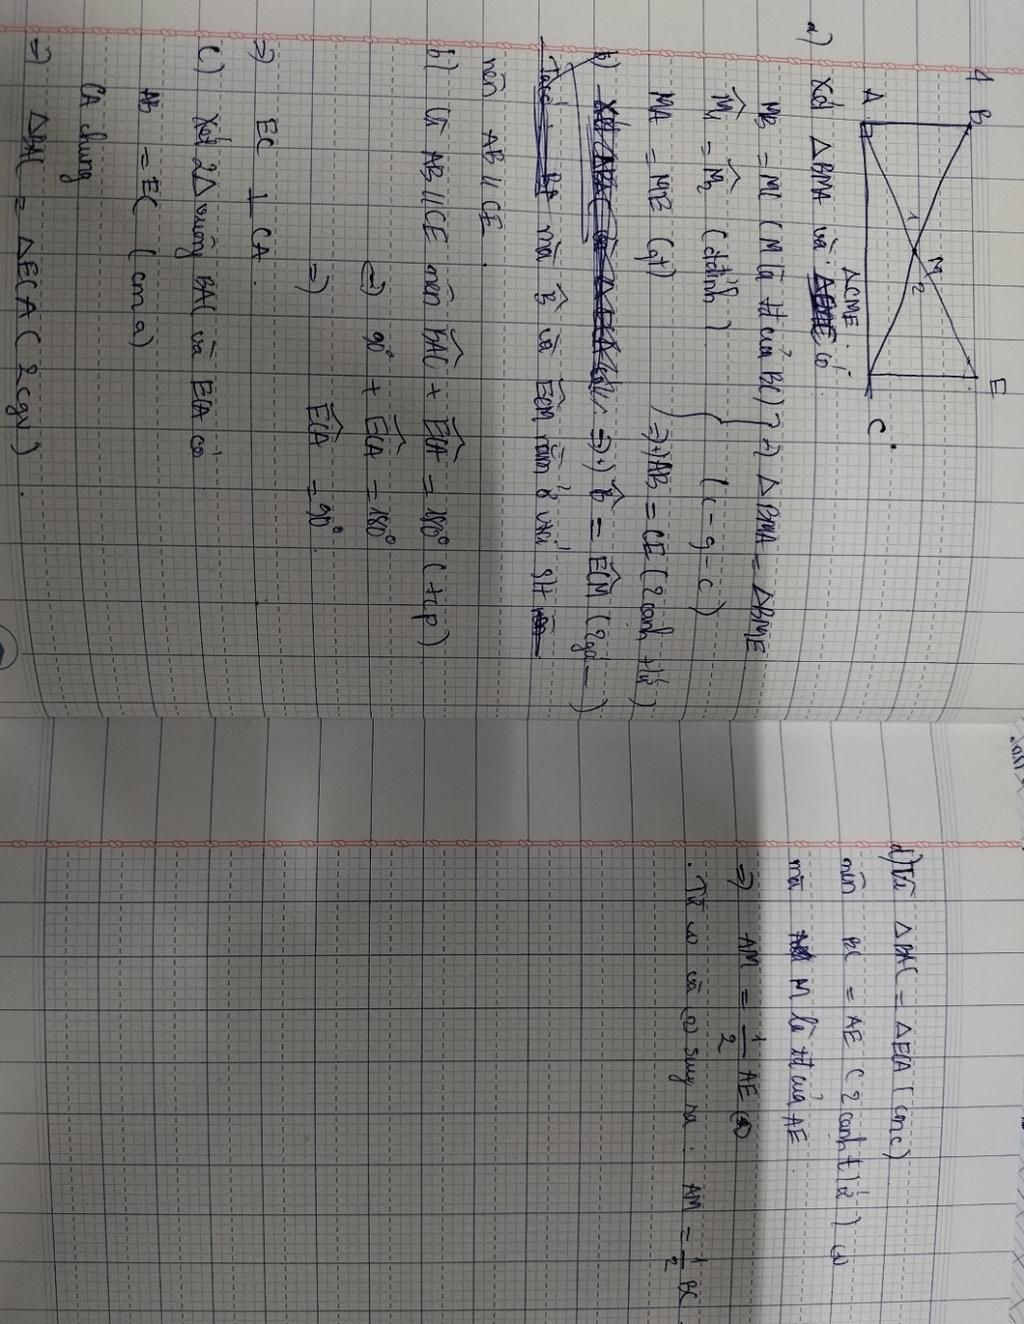 A B E
M
1 2
A C
a) Xét △BMA và △CME có
MB = MC (M là tđ của BC)
M̂₁ = M̂₂ (đđỉnh)
MA = ME (gt)
=> △BMA = △BME
(c-g-c)
=> +) AB = CE (2 cạnh tứ)
=> +) B̂ = ECM (2gó
mà B̂ và ECM nằm ở vtrí slt
nên AB // CE.
b) Vì AB // CE nên BAC + ECA = 180° (tcp)
90° + ECA = 180°
=> ECA = 90°
=> EC ⊥ CA.
c) Xét 2△ vuông BAC và ECA có
AB = EC (cm a)
CA chung
=> △BAC = △ECA (2cgv).
d) Vì △BAC = △ECA (cmc)
nên BC = AE (2 cạnh tứ) (1)
mà M là tđ của AE
=> AM = 1/2 AE (2)
. Từ (1) và (2) suy ra: AM = 1/2 BC